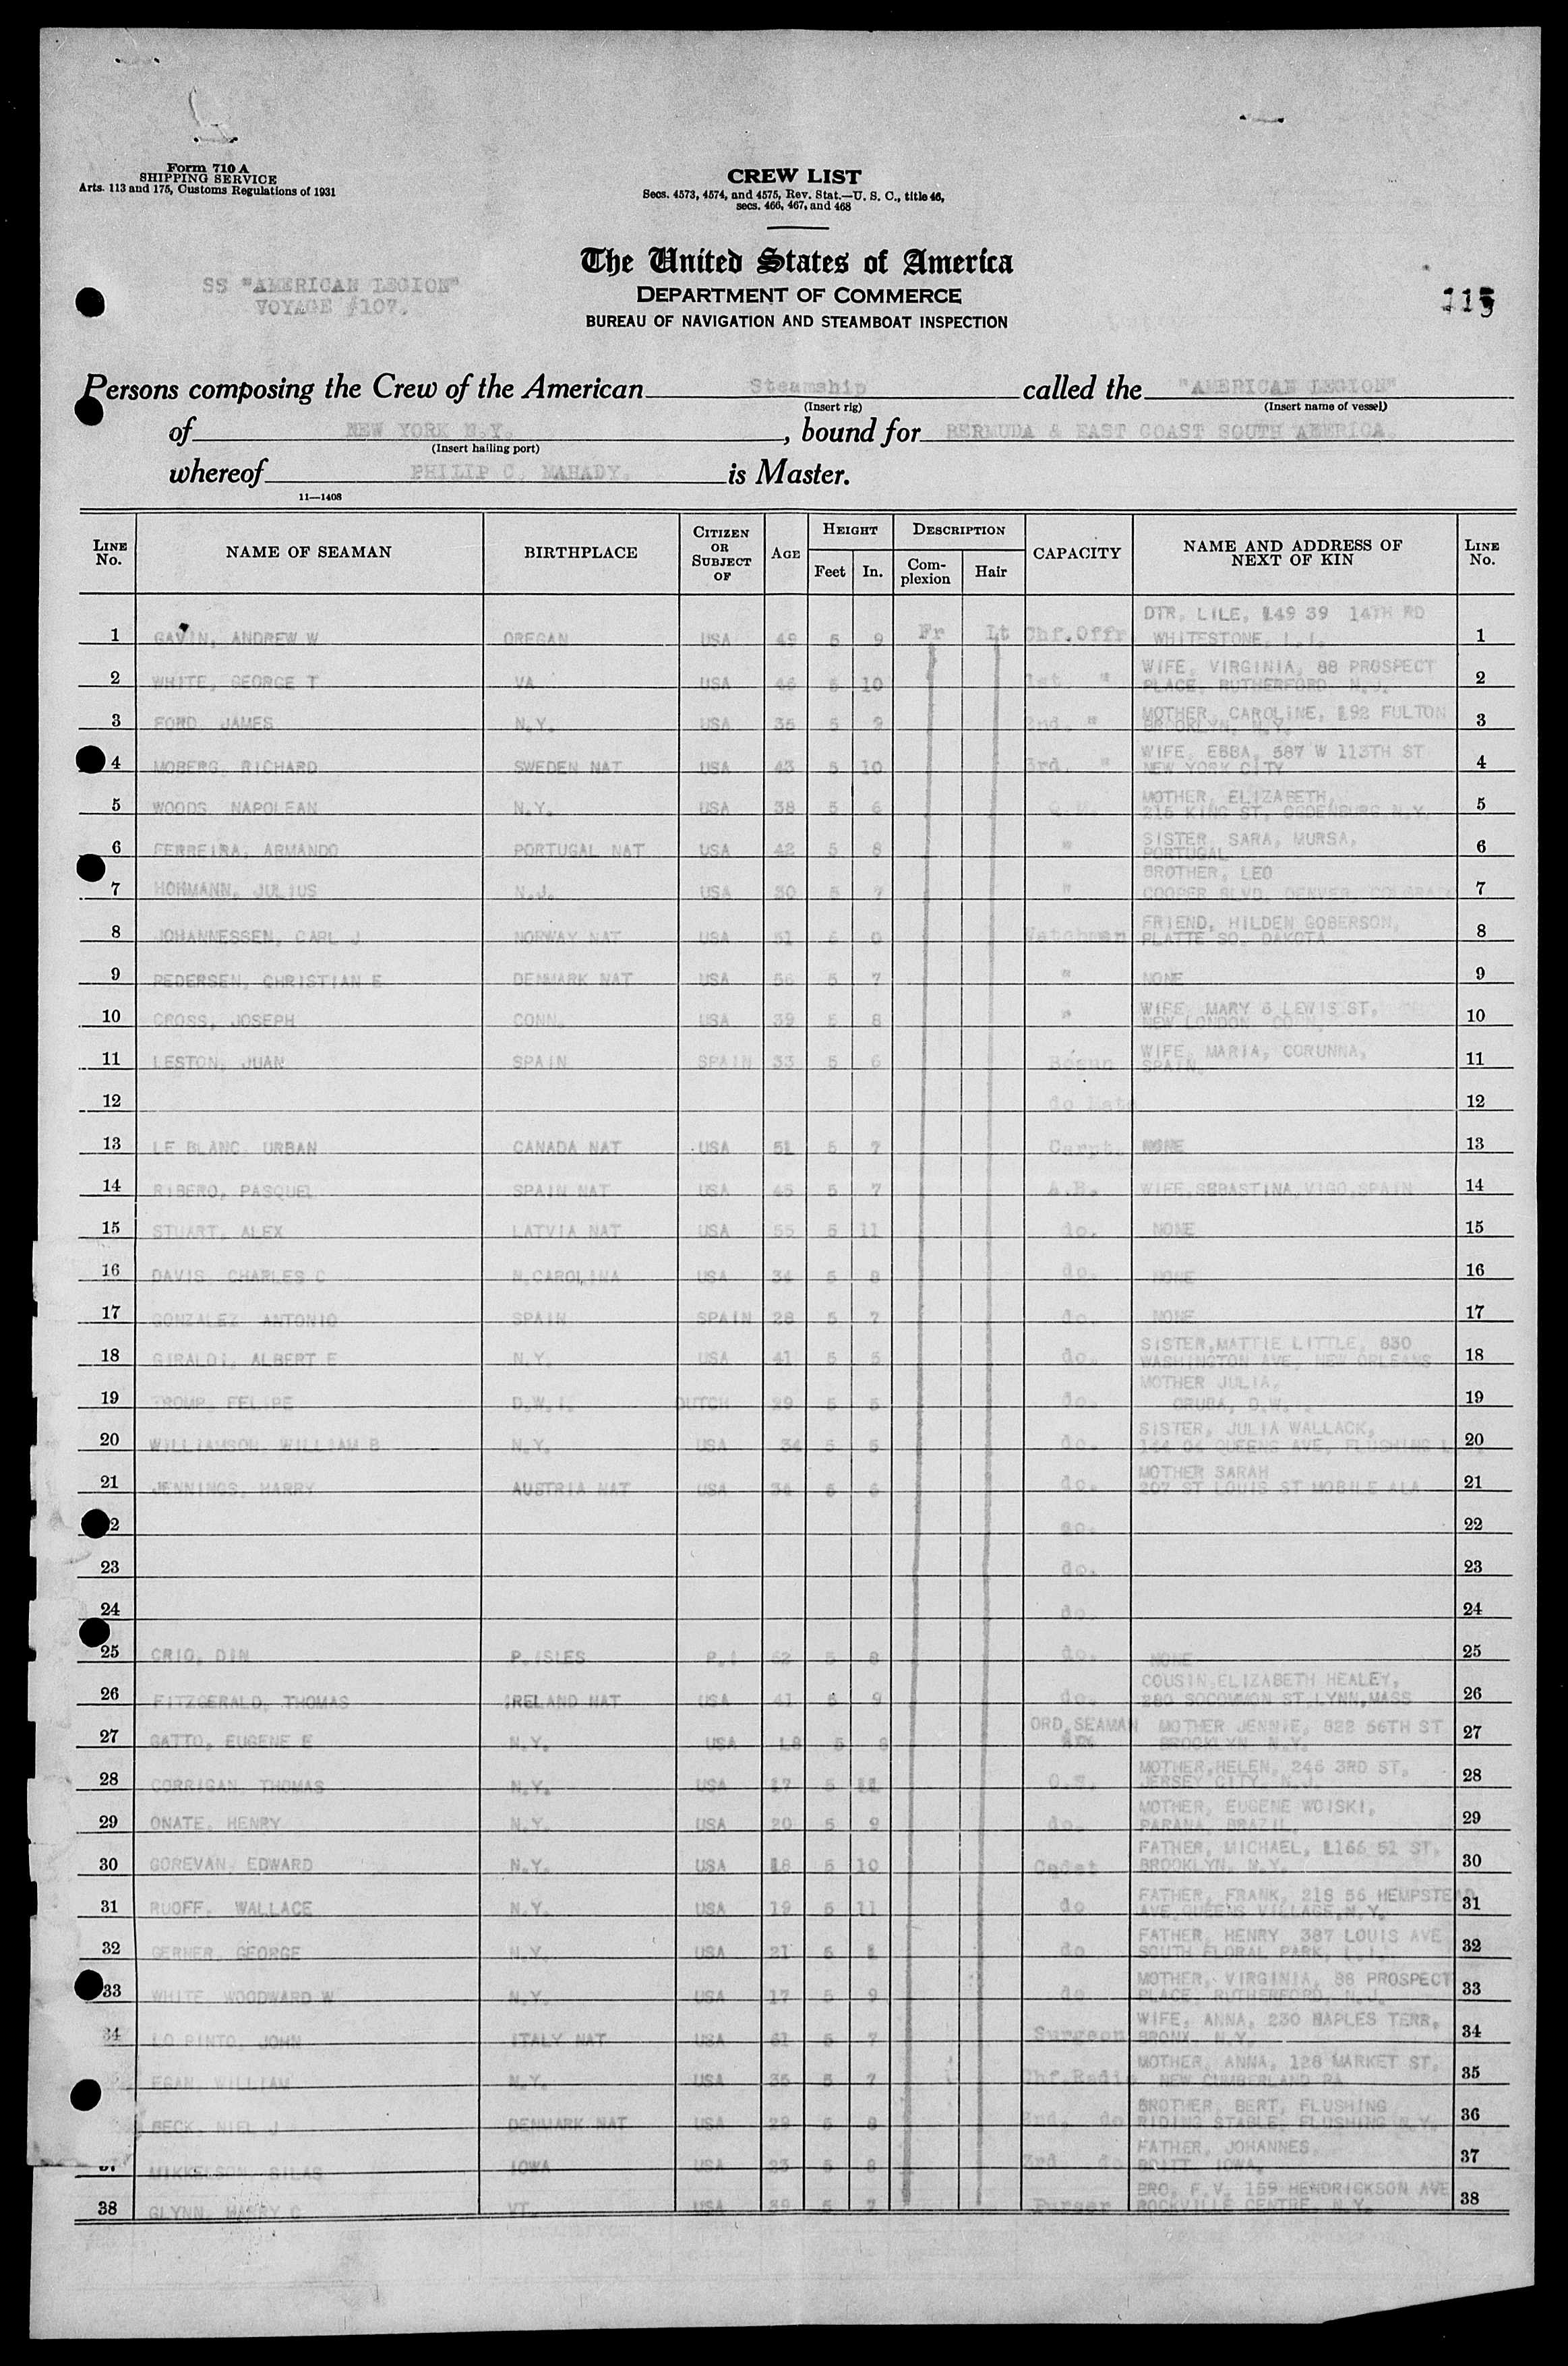 Form 710 A
SHIPPING SERVICE
Arts. 113 and 175, Customs Regulations of 1931
CREW LIST
Secs. 4573, 4574, and 4575, Rev. Stat.—U. S. C., title 46,
secs. 466, 467, and 468
The United States of America
DEPARTMENT OF COMMERCE
BUREAU OF NAVIGATION AND STEAMBOAT INSPECTION
SS "AMERICAN LEGION"
VOYAGE #107.
Persons composing the Crew of the American Steamship called the "AMERICAN LEGION"
(Insert rig) (Insert name of vessel)
of NEW YORK N.Y., bound for BERMUDA & EAST COAST SOUTH AMERICA.
(Insert hailing port)
whereof PHILIP C. MAHADY. is Master.
11—1408
LINE No. NAME OF SEAMAN BIRTHPLACE CITIZEN OR SUBJECT OF AGE HEIGHT Feet In. DESCRIPTION Complexion Hair CAPACITY NAME AND ADDRESS OF NEXT OF KIN LINE No.
1 GAVIN, ANDREW W OREGAN USA 49 5 9 Fr Lt Chf.Offr DTR, LILE, 149 39 14TH RD WHITESTONE, L.I. 1
2 WHITE, GEORGE T VA USA 46 5 10 1st. " WIFE, VIRGINIA, 88 PROSPECT PLACE, RUTHERFORD N.J. 2
3 FORD JAMES N.Y. USA 35 5 9 2nd. " MOTHER, CAROLINE, 192 FULTON BROOKLYN, N.Y. 3
4 MOBERG, RICHARD SWEDEN NAT USA 43 5 10 3rd. " WIFE, EBBA, 587 W 113TH ST NEW YORK CITY 4
5 WOODS NAPOLEAN N.Y. USA 38 5 6 Q.M. MOTHER, ELIZABETH, 215 KING ST, OGDENBURG N.Y. 5
6 FERREIRA, ARMANDO PORTUGAL NAT USA 42 5 8 " SISTER SARA, MURSA, PORTUGAL 6
7 HOHMANN, JULIUS N.J. USA 30 5 7 " BROTHER, LEO COOPER BLVD. DENVER, COLORADO 7
8 JOHANNESSEN, CARL J NORWAY NAT USA 51 6 0 Watchman FRIEND, HILDEN GOBERSON, PLATTE SO. DAKOTA 8
9 PEDERSEN, CHRISTIAN E DENMARK NAT USA 56 5 7 " NONE 9
10 CROSS, JOSEPH CONN. USA 39 5 8 " WIFE, MARY 6 LEWIS ST, NEW LONDON CONN. 10
11 LESTON, JUAN SPAIN SPAIN 33 5 6 Bosun WIFE, MARIA, CORUNNA, SPAIN. 11
12 do Mate 12
13 LE BLANC URBAN CANADA NAT USA 51 5 7 Carpt. NONE 13
14 RIBERO, PASQUEL SPAIN NAT USA 45 5 7 A.B. WIFE,SEBASTINA,VIGO,SPAIN 14
15 STUART, ALEX LATVIA NAT USA 55 5 11 do. NONE 15
16 DAVIS, CHARLES C N.CAROLINA USA 34 5 8 do. NONE 16
17 GONZALEZ ANTONIO SPAIN SPAIN 28 5 7 do. NONE 17
18 GIRALDI, ALBERT E N.Y. USA 41 5 5 do. SISTER,MATTIE LITTLE, 830 WASHINGTON AVE, NEW ORLEANS 18
19 TROMP, FELIPE D.W.I. DUTCH 29 5 5 do. MOTHER JULIA, ORUBA, D.W. 19
20 WILLIAMSON, WILLIAM B N.Y. USA 34 5 5 do. SISTER, JULIA WALLACK, 144 04 QUEENS AVE, FLUSHING L 20
21 JENNINGS, HARRY AUSTRIA NAT USA 34 5 6 do. MOTHER SARAH 207 ST LOUIS ST MOBILE ALA 21
22 do. 22
23 do. 23
24 do. 24
25 CRIO, DIN P.ISLES P.I 62 5 8 do. NONE 25
26 FITZGERALD, THOMAS IRELAND NAT USA 41 5 9 do. COUSIN,ELIZABETH HEALEY, 280 SOCOMMON ST,LYNN,MASS 26
27 GATTO, EUGENE E N.Y. USA 18 5 8 ORD.SEAMAN MOTHER JENNIE, 822 56TH ST BROOKLYN N.Y. 27
28 CORRIGAN, THOMAS N.Y. USA 17 5 11 O.S. MOTHER,HELEN, 245 3RD ST, JERSEY CITY, N.J. 28
29 ONATE, HENRY N.Y. USA 20 5 9 do. MOTHER, EUGENE WOISKI, PARANA, BRAZIL, 29
30 GOREVAN, EDWARD N.Y. USA 18 5 10 Cadet FATHER, MICHAEL, 1166 51 ST, BROOKLYN, N.Y. 30
31 RUOFF, WALLACE N.Y. USA 19 5 11 do FATHER, FRANK, 218 56 HEMPSTEAD AVE.QUEENS VILLAGE,N.Y. 31
32 GERNER, GEORGE N.Y. USA 21 6 1 do FATHER, HENRY 387 LOUIS AVE SOUTH FLORAL PARK, L.I. 32
33 WHITE WOODWARD W N.Y. USA 17 5 9 do MOTHER, VIRGINIA, 88 PROSPECT PLACE, RUTHERFORD, N.J. 33
34 LO PINTO, JOHN ITALY NAT USA 61 5 7 Surgeon WIFE, ANNA, 230 NAPLES TERR, BRONX N.Y. 34
EGAN, WILLIAM N.Y. USA 35 5 7 Chf.Radio MOTHER, ANNA, 128 MARKET ST, NEW CUMBERLAND PA 35
BECK, NIEL J DENMARK NAT USA 29 5 8 2nd. do BROTHER, BERT, FLUSHING RIDING STABLE, FLUSHING N.Y. 36
37 MIKKELSON, SILAS IOWA USA 23 5 8 3rd. do FATHER, JOHANNES, BRITT, IOWA, 37
38 GLYNN, HARRY C VT. USA 39 5 7 Purser BRO, F.V. 159 HENDRICKSON AVE ROCKVILLE CENTRE, N.Y. 38